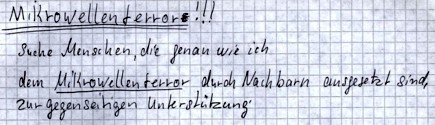 Mikrowellenterror!!!
Suche Menschen, die genau wie ich
dem Mikrowellenterror durch Nachbarn ausgesetzt sind,
zur gegenseitigen Unterstützung